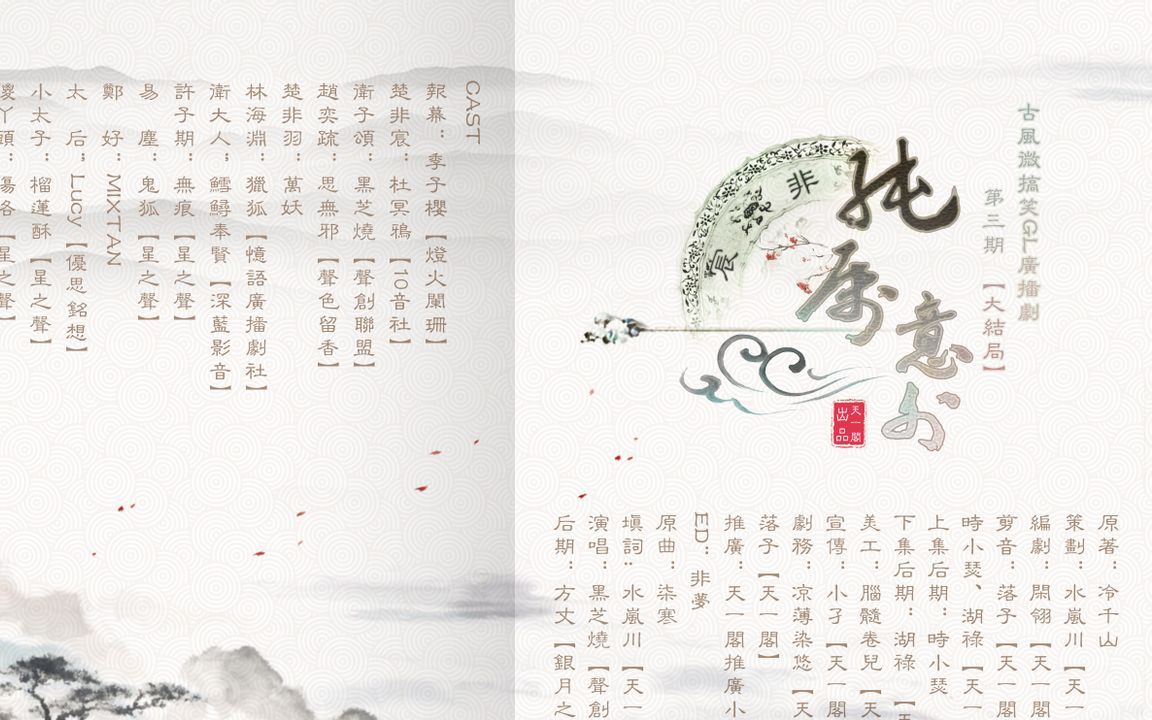 古風微搞笑GL廣播劇
第三期【大結局】
純屬意外
非
宸
天一閣
出品
原著：冷千山
策劃：水嵐川【天一
編劇：閑翎【天一閣
剪音：落子【天一閣
時小瑟、湖祿【天一
上集后期：時小瑟
下集后期：湖祿【天
美工：腦髓卷兒【天
宣傳：小孑【天一閣
劇務：凉薄染悠【天
落子【天一閣】
推廣：天一閣推廣小
ED：非夢
原曲：柒寒
填詞：水嵐川【天一
演唱：黑芝燒【聲創
后期：方丈【銀月之
CAST
報幕：季子櫻【燈火闌珊】
楚非宸：杜冥鴉【10音社】
衛子頌：黑芝燒【聲創聯盟】
趙奕疏：思無邪【聲色留香】
楚非羽：萬妖
林海淵：獵狐【憶語廣播劇社】
衛大人：鱈鱘奉賢【深藍影音】
許子期：無痕【星之聲】
易塵：鬼狐【星之聲】
鄭好：MIXTAN
太后：Lucy【優思銘想】
小太子：榴蓮酥【星之聲】